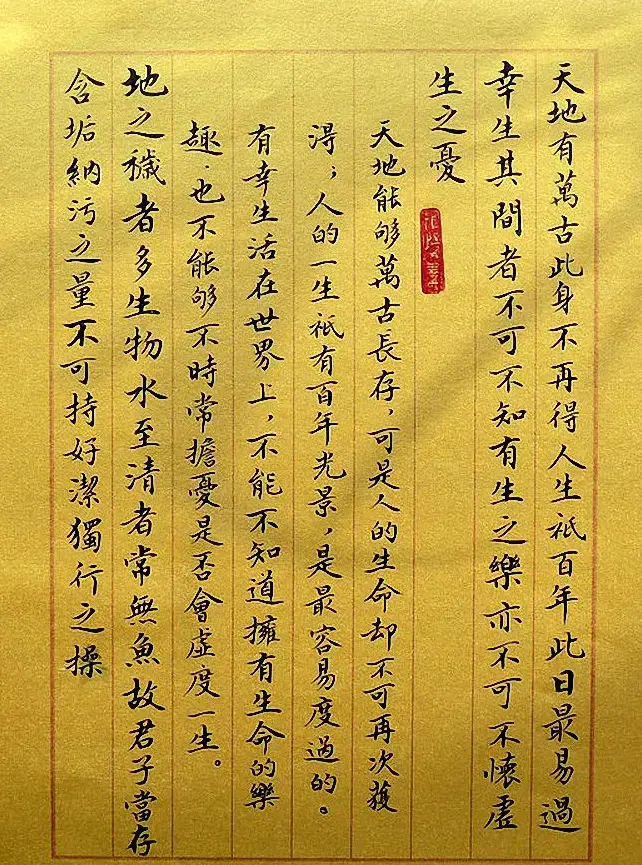 天地有萬古此身不再得人生祇百年此日最易過
幸生其間者不可不知有生之樂亦不可不懷虛
生之憂
天地能够萬古長存，可是人的生命却不可再次獲
得；人的一生祇有百年光景，是最容易度過的。
有幸生活在世界上，不能不知道擁有生命的樂
趣．也不能够不時常擔憂是否會虛度一生。
地之穢者多生物水至清者常無魚故君子當存
含垢納污之量不可持好潔獨行之操